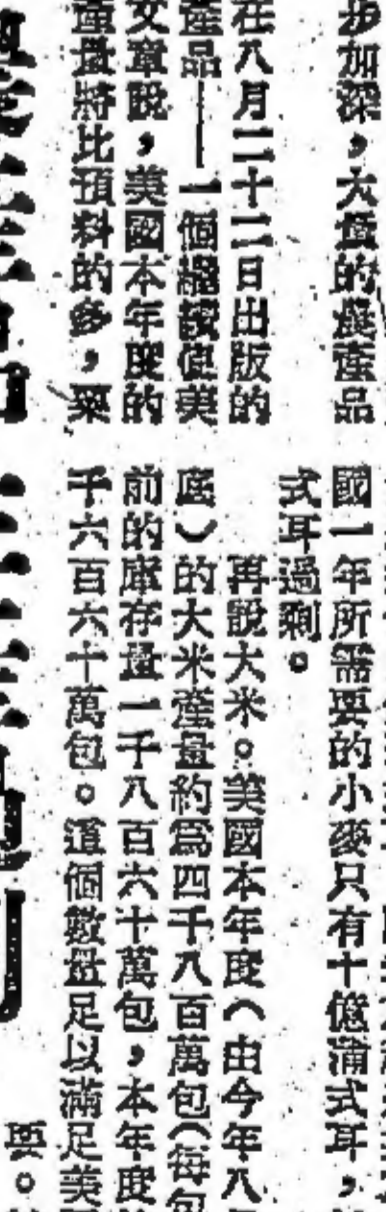 步加深，大量的農產品
在八月二十二日出版的
產品——一個繼續使美
文章說，美國本年度的
產量將比預料的多，粟
國一年所需要的小麥只有十億蒲式耳，
式耳過剩。
再說大米。美國本年度（由今年八
底）的大米產量約爲四千八百萬包（每
前的庫存量一千八百六十萬包，本年度
千六百六十萬包。這個數量足以滿足美
要。